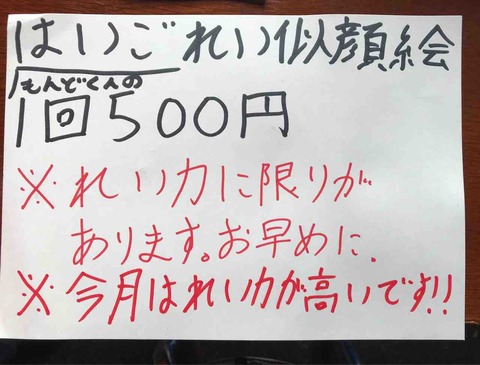 はいごれい似顔絵
もんどくんの
1回500円
※れい力に限りが
あります。お早めに.
※今月はれい力が高いです!!